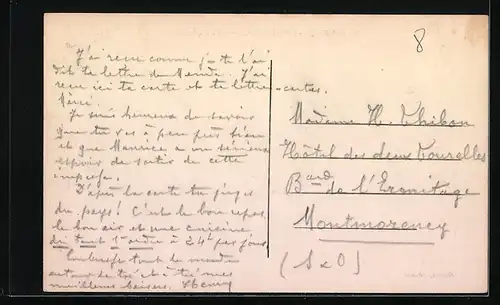 8
J'ai reçu comme je te l'ai
dit ta lettre de Mende. J'ai
reçu ici ta carte et ta lettre-cartes.
Merci.
Je suis heureux de savoir
que tu vas à peu près bien
et que Maurice a un sérieux
espoir de sortir de cette
impasse.
D'après la carte tu juges
du pays! C'est le bon repos,
le bon air et une cuisine
de tout 1er ordre à 24f par jour
tout le monde
autour de toi et à toi mes
meilleurs baisers. Henry
Madame H. Thibon
Hôtel des deux Tourelles
Bard de l'Ermitage
Montmorency
(S & O)